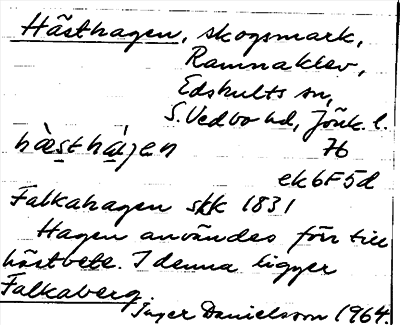 Hästhagen, skogsmark,
Ramnaklev,
Edshults sn,
S. Vedbo hd, Jönk. l.
76
ek 6F5d
Falkahagen skk 1831
Hagen användes förr till
hästbete. I denna ligger
Falkaberg
Inger Danielsson 1964.